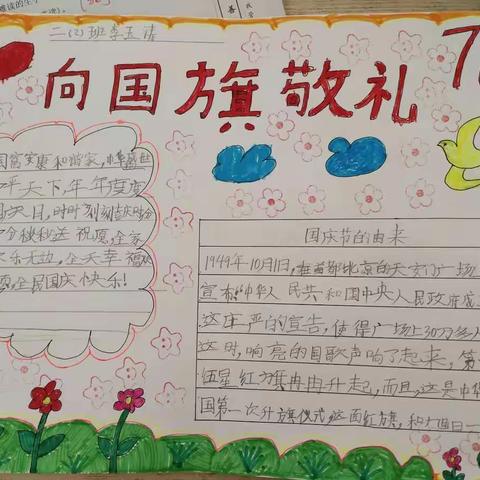 二(2)班李五诗
向国旗敬礼
7
国富安康和谐家,中华盛世
平天下,年年度度
天日,时时刻刻
分秒秒送祝愿,全家
乐无边,全天幸福
愿,全民国庆快乐!
国庆节的由来
1949年10月1日,在首都北京的天安门广场
宣布:“中华人民共和国中央人民政府成
这庄严的宣告,使得广场上30万多人
这时,响亮的国歌声响了起来,第一
伍星红旗冉冉升起,而且,这是中华
国第一次升旗仪式,这面红旗,和